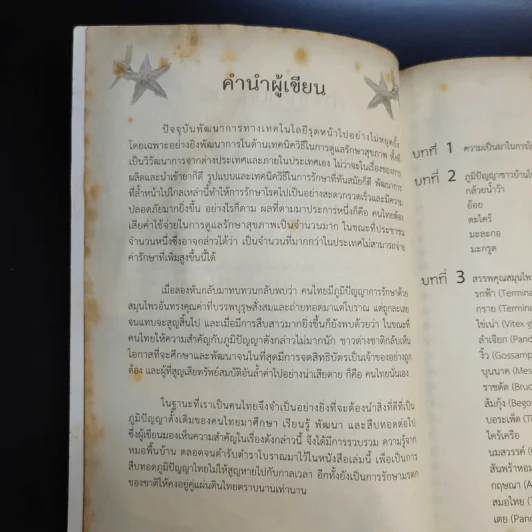 คำนำผู้เขียน
ปัจจุบันพัฒนาการทางเทคโนโลยีรุดหน้าไปอย่างไม่หยุดยั้ง
โดยเฉพาะอย่างยิ่งพัฒนาการในด้านเทคนิควิธีในการดูแลรักษาสุขภาพ ทั้งที่
เป็นวิวัฒนาการจากต่างประเทศและภายในประเทศเอง ไม่ว่าจะในเรื่องของการ
ผลิตและนำเข้ายาก็ดี รูปแบบและเทคนิควิธีในการรักษาที่ทันสมัยก็ดี พัฒนาการ
ที่ล้ำหน้าไปไกลเหล่านี้ทำให้การรักษาโรคเป็นไปอย่างสะดวกรวดเร็วและมีความ
ปลอดภัยมากยิ่งขึ้น อย่างไรก็ตาม ผลที่ตามมาประการหนึ่งก็คือ คนไทยต้อง
เสียค่าใช้จ่ายในการดูแลรักษาสุขภาพเป็นจำนวนมาก ในขณะที่ประชาชน
จำนวนหนึ่งซึ่งอาจกล่าวได้ว่า เป็นจำนวนที่มากกว่าในประเทศไม่สามารถจ่าย
ค่ารักษาที่เพิ่มสูงขึ้นนี้ได้
เมื่อลองหันกลับมาทบทวนกลับพบว่า คนไทยมีภูมิปัญญาการรักษาด้วย
สมุนไพรอันทรงคุณค่าที่บรรพบุรุษสั่งสมและถ่ายทอดมาแต่โบราณ แต่ถูกละเลย
จนแทบจะสูญสิ้นไป และเมื่อมีการสืบสาวมากยิ่งขึ้นก็ยังพบด้วยว่า ในขณะที่
คนไทยให้ความสำคัญกับภูมิปัญญาดังกล่าวไม่มากนัก ชาวต่างชาติกลับเห็น
โอกาสที่จะศึกษาและพัฒนาจนในที่สุดมีการจดสิทธิบัตรเป็นเจ้าของอย่างถูก
ต้อง และผู้ที่สูญเสียทรัพย์สมบัติอันล้ำค่าไปอย่างน่าเสียดาย ก็คือ คนไทยนั่นเอง
ในฐานะที่เราเป็นคนไทยจึงจำเป็นอย่างยิ่งที่จะต้องนำสิ่งที่ดีที่เป็น
ภูมิปัญญาดั้งเดิมของคนไทยมาศึกษา เรียนรู้ พัฒนา และสืบทอดต่อไป
ซึ่งผู้เขียนมองเห็นความสำคัญในเรื่องดังกล่าวนี้ จึงได้มีการรวบรวม ความรู้จาก
หมอพื้นบ้าน ตลอดจนตำรับตำราโบราณมาไว้ในหนังสือเล่มนี้ เพื่อเป็นการ
สืบทอดภูมิปัญญาไทยไม่ให้สูญหายไปกับกาลเวลา อีกทั้งยังเป็นการรักษามรดก
ของชาติให้คงอยู่คู่แผ่นดินไทยตราบนานเท่านาน
บทที่ 1 ความเป็นมาในการใ
บทที่ 2 ภูมิปัญญาชาวบ้านใ
กล้วยน้ำว้า
อ้อย
ตะไคร้
มะละกอ
มะกรูด
บทที่ 3 สรรพคุณสมุนไพร
รกฟ้า (Termina
กราย (Terminal
ไข่เน่า (Vitex gl
ลำเจียก (Pand
งิ้ว (Gossamp
บุนนาค (Mes
ราชดัด (Bruc
ส้มกุ้ง (Bego
บอระเพ็ด (Ti
ใคร้เครือ
นมสวรรค์ (
สันพร้าหอม
กฤษณา (A
สมอไทย (T
เตย (Pand